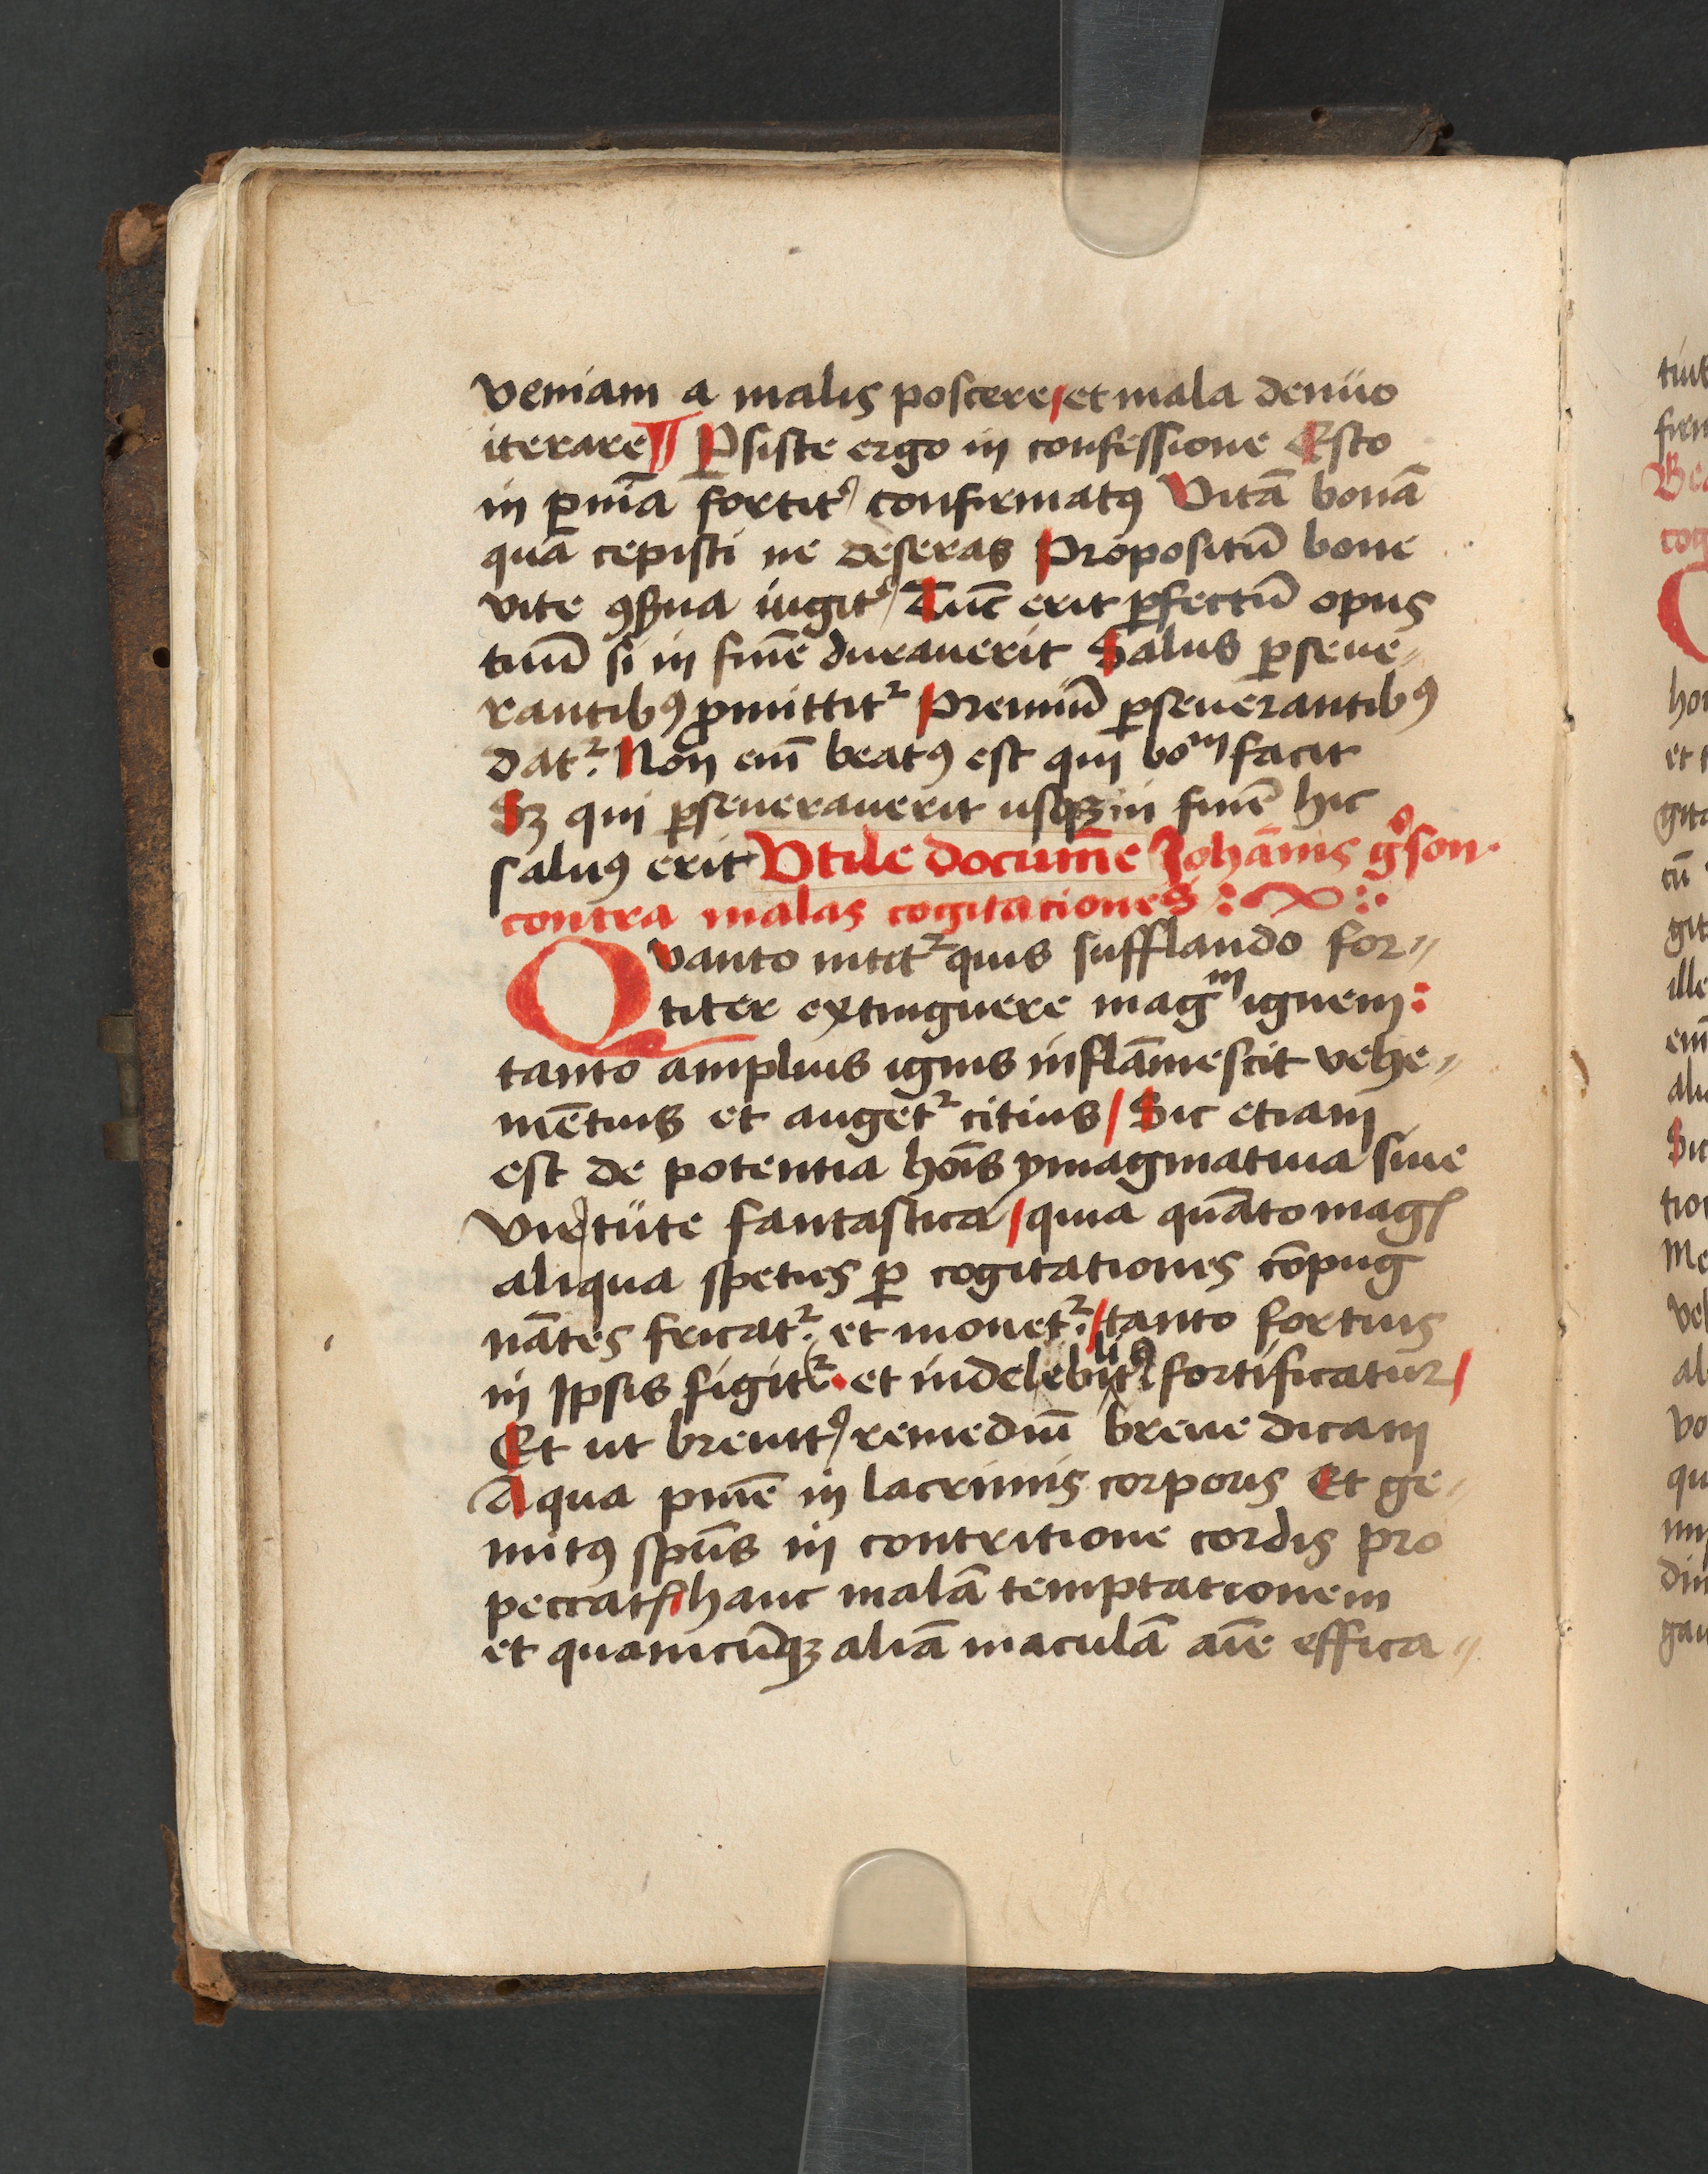 veniam a malis poscere / et mala denuo
iterare ¶ P̲siste ergo in confessione Esto
in pn̄ia fortit᷑ confirmatꝯ Vitā bonā
quā cepisti ne deseras Propositū bone
vite ꝯẞua iugit᷑ Tūc erit ꝑfectū opus
tuū si in finē durauerit Salus ꝑseue-
rantibꝯ ꝓmittit᷑ Premiū ꝑseuerantibꝯ
dat᷑. Non em̄ beatꝯ est qui boᵐ facit
Sꝫ qui ꝑseuerauerit usqꝫ in finē hic
saluꝯ erit Vtile documē Johānis g᷑son.
contra malas cogitationes
Qvanto nitit᷑ quis sufflando for-
titer extinguere magᵐ ignem:
tanto amplius ignis inflāmescit vehe-
mētius et auget᷑ citius / Sic etiam
est de potentia hoīs ymaginatiua siue
virtute fantastica / quia quāto magꝭ
aliqua speties ꝑ cogitationes cōpug
nātes fricat᷑. et mouet᷑. / tanto fortius
in Ipsis figit᷑. et indelebilit᷑ fortificatur /
Et ut breuit᷑ remediū breue dicam
Aqua pn̄ie in lacrimis corporis Et ge-
mitꝯ sp̄us in contritione cordis pro
peccatꝭ hanc malā temptationem
et quamcūqꝫ aliā maculā aīe effica-